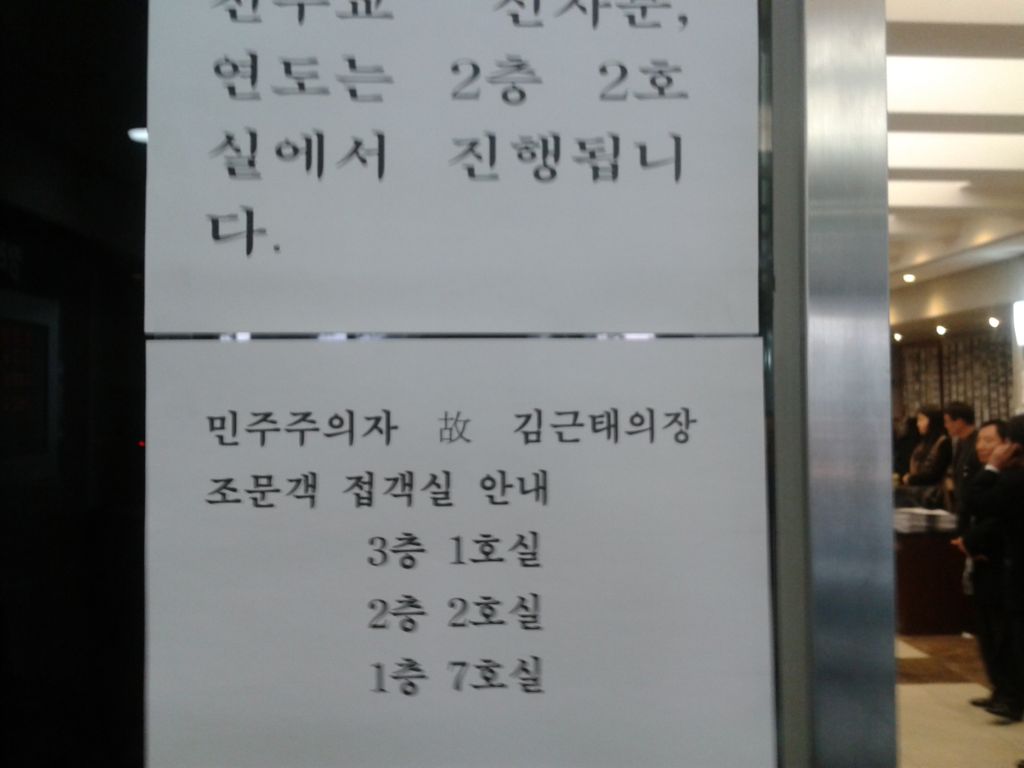 연도는 2층 2호
실에서 진행됩니
다.
민주주의자 故 김근태의장
조문객 접객실 안내
3층 1호실
2층 2호실
1층 7호실